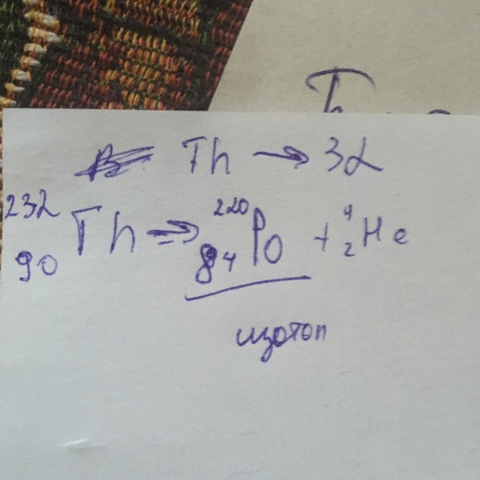 Th → 3α
²³²₉₀Th → ²²⁰₈₄Po + ⁴₂He
изотоп